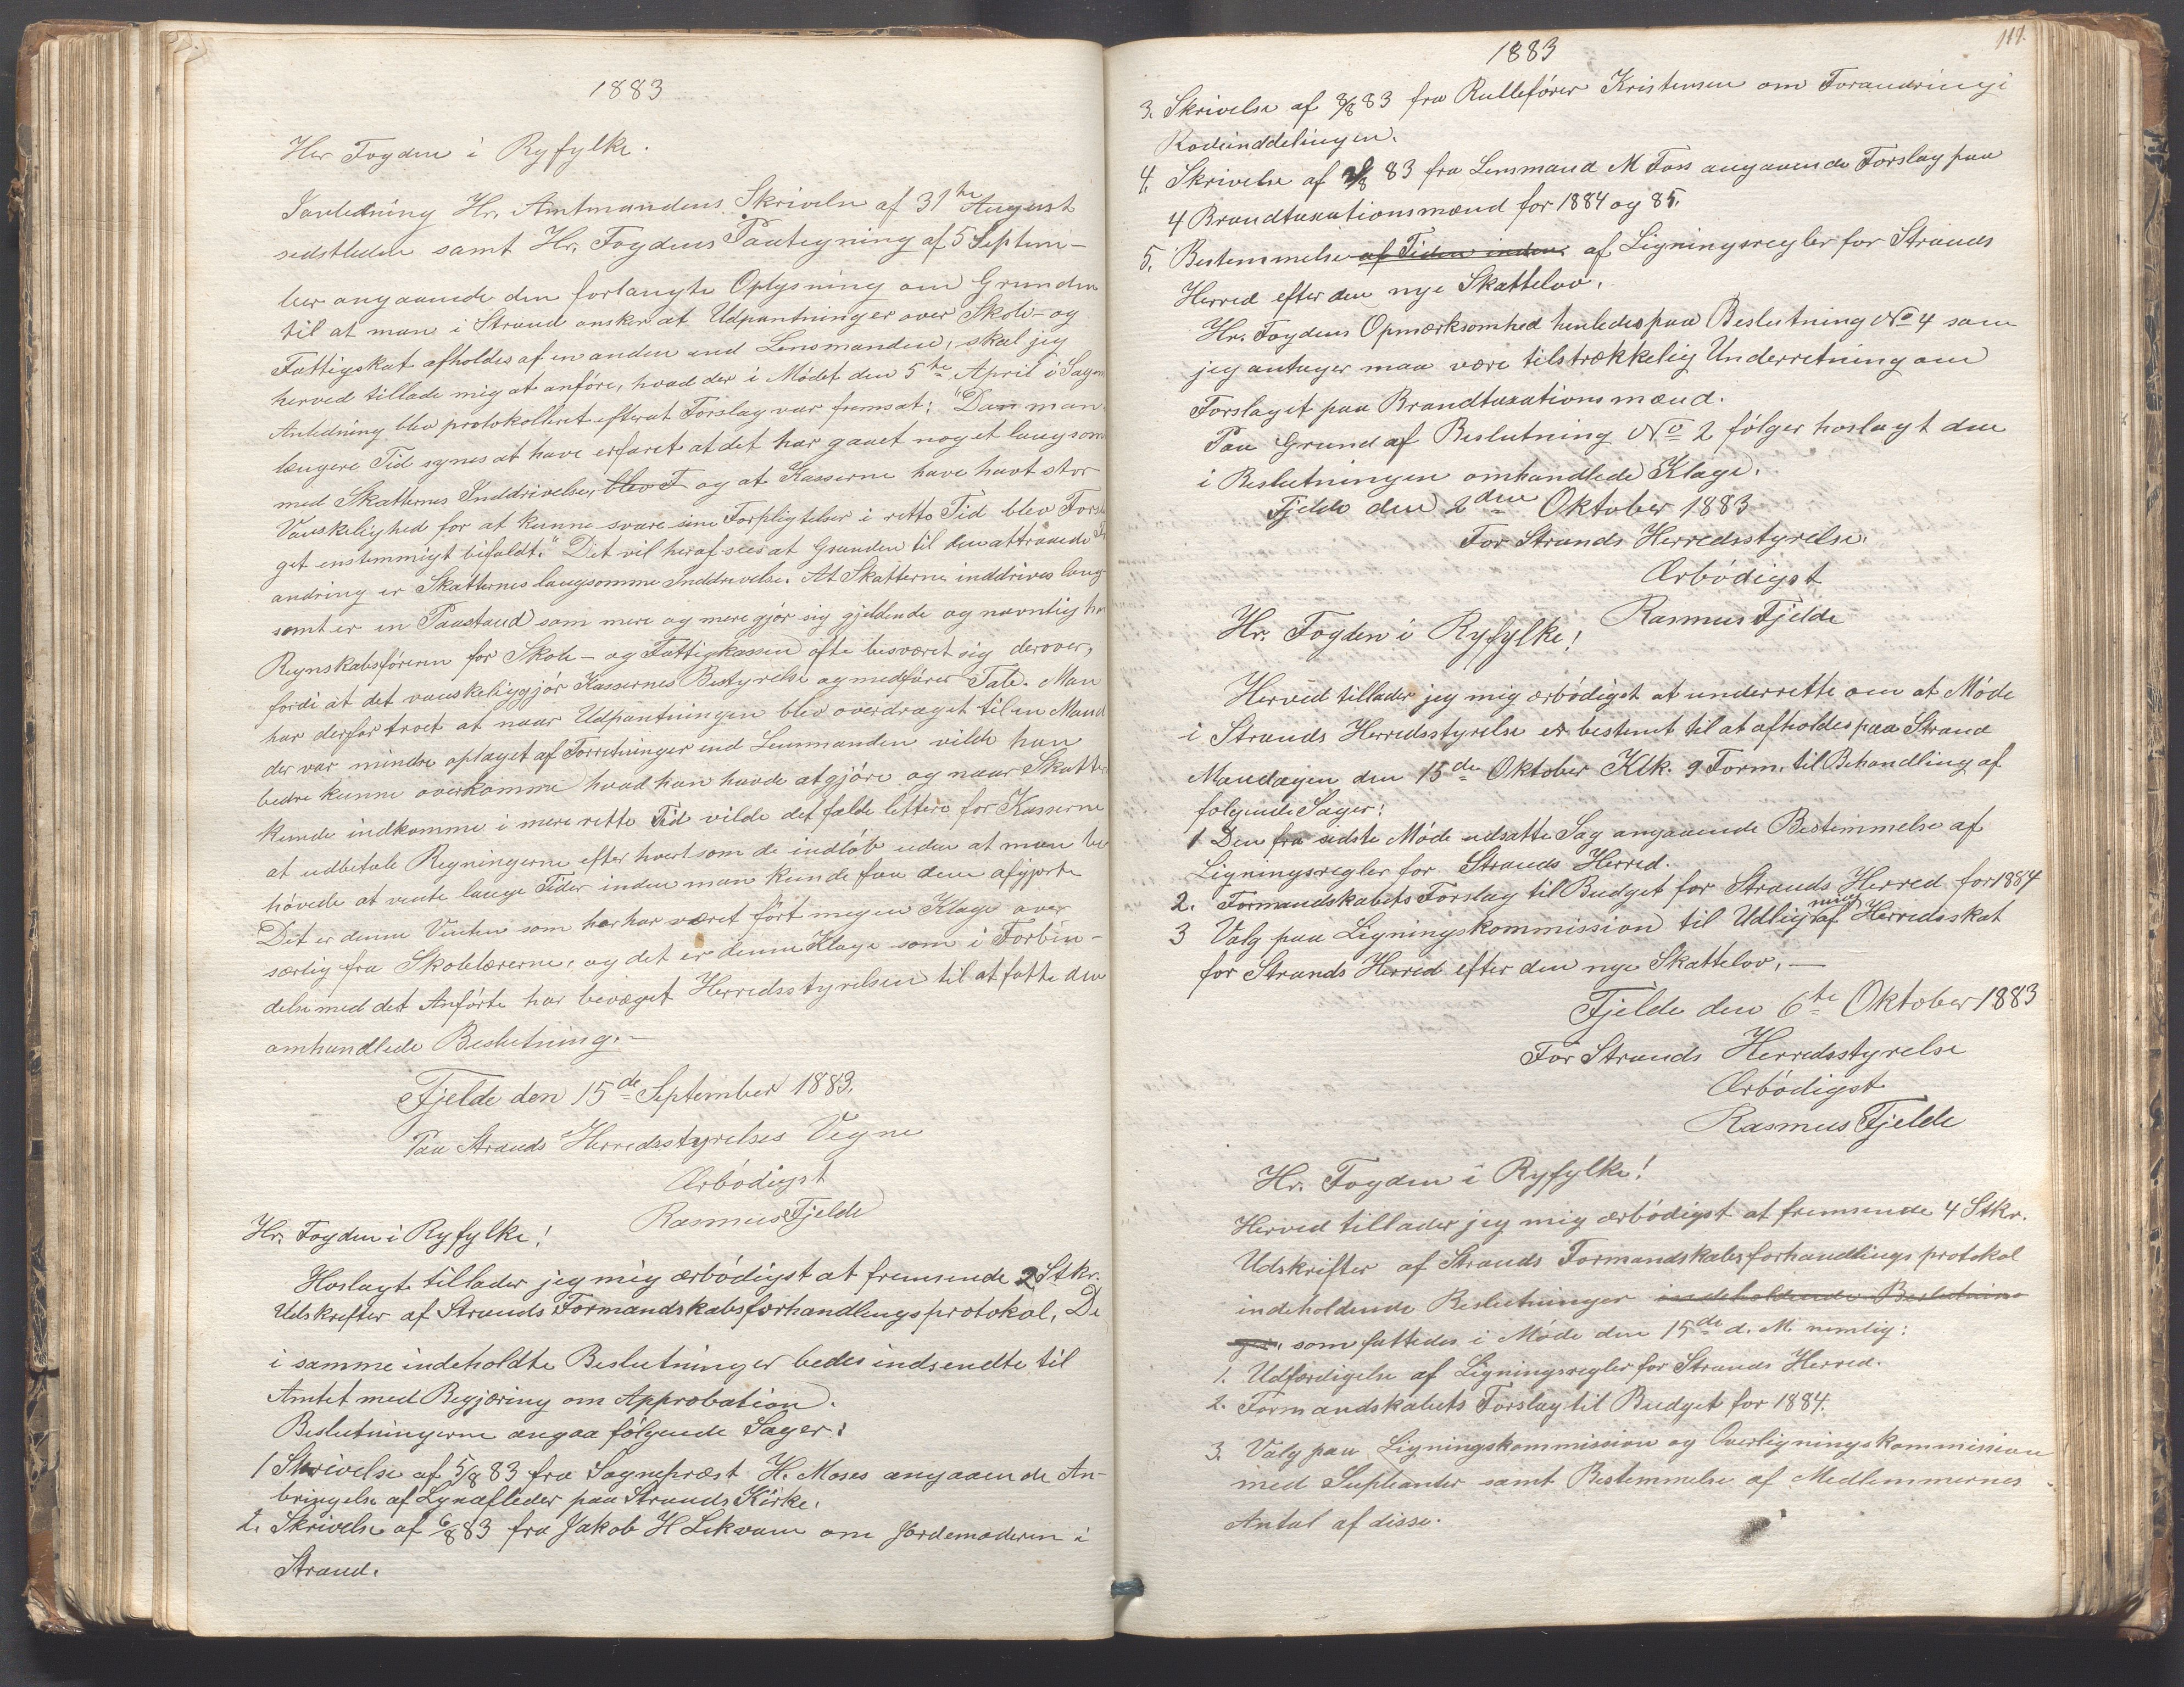 1883
Her Fogden i Ryfylke.
Ianledning Hr. Amtmandens Skrivelse af 31te August
sidstleden samt Hr. Fogdens Paategning af 5 Septem-
ber angaaende den forlangte Oplysning om Grunden
til at man i Strand ønsker at Udpantninger over Skole- og
Fattigskat afholdes af en anden end Lensmanden, skal jeg
herved tillade mig at anföre, hvad der i Mödet den 5te April i Sagens
Anledning blev protokolleret efterat Forslag var fremsat: "Da man
længere Tid synes at have erfaret at det har gaaet noget langsomt
med Skatternes Inddrivelse, blev F og at Kasserne have havt stor
Vanskelighed for at kunne svare sine Forpligtelser i rette Tid blev Forsla
get enstemmigt bifaldt." Det vil heraf sees at Grunden til den attraaede
andring er Skatternes langsomme Inddrivelse. At Skatterne inddrives lang
somt er en Paastand som mere og mere gjör sig gjeldende og navnlig ha
Regnskabsföreren for Skole- og Fattigkassen ofte besværet sig derover,
fordi at det vanskeliggjör Kassernes Bestyrelse og medförer Tale. Man
har derfor troet at naar Udpantningen blev overdraget til en Mand
der var mindre optaget af Forretninger end Lensmanden vilde han
bedre kunne overkomme hvad han havde atgjöre og naar Skatte
kunde indkomme i mere rette Tid vilde det falde lettere for Kasserne
at udbetale Regningerne efter hvert som de indlöb uden at man be
hövede at vente lange Tider inden man kunde faa dem afgjorte
Det er denne Venten som her har været fört megen Klage over
særlig fra Skolelærerne, og det er denne Klage som i Forbin-
delse med det Anförte har bevæget Herredsstyrelsen til at fatte den
omhandlede Beslutning.-
Fjelde den 15de September 1883.
Paa Strands Herredsstyrelses Vegne
Ærbödigst
Rasmus Fjelde
Hr. Fogden i Ryfylke!
Hoslagt tillader jeg mig ærbödigst at fremsende 2 Stkr.
Udskrifter af Strands Formandskabsforhandlingsprotokol, De
i samme indeholdte Beslutninger bedes indsendte til
Amtet med Begjæring om Approbation.
Beslutningerne angaa fölgende Sager:
1 Skrivelse af 5/8 83 fra Sognepræst H. Moses angaaende An-
bringelse af Lynafleder paa Strands Kirke.
2. Skrivelse af 6/8 83 fra Jakob H Lekvam om Jordemoderen i
Strand.
1883
3. Skrivelse af 8/8 83 fra Rulleförer Kristensen om Forandring i
Rodeinddelingen.
4. Skrivelse af /8 83 fra Lensmand M Foss angaaende Forslag paa
4 Brandtaxationsmænd for 1884 og 85.
5. Bestemmelse af Tiden inden af Ligningsregler for Strands
Herred efter den nye Skattelov.
Hr. Fogdens Opmærksomhed henledes paa Beslutning No 4 som
jeg antager maa være tilstrækkelig Underretning om
Forslaget paa Brandtaxationsmænd.
Paa Grund af Beslutning No 2 fölger hoslagt den
i Beslutningen omhandlede Klage.
Fjelde den 2den Oktober 1883
For Strands Herredsstyrelse.
Ærbödigst
Rasmus Fjelde
Hr. Fogden i Ryfylke!
Herved tillader jeg mig ærbödigst at underrette om at Möde
i Strands Herredsstyrelse er bestemt til at afholdes paa Strand
Mandagen den 15de Oktober Klk. 9 Form. til Behandling af
folgende Sager:
1 Den fra sidste Möde udsatte Sag angaaende Bestemmelse af
Ligningsregler for Strands Herred.
2. Formandskabets Forslag til Budget for Strands Herred for 1884
3 Valg paa Ligningskommission til Udligning af Herredsskat
for Strands Herred efter den nye Skattelov. —
Fjelde den 6te Oktober 1883
For Strands Herredsstyrelse
Ærbödigst
Rasmus Fjelde
Hr. Fogden i Ryfylke!
Herved tillader jeg mig ærbödigst at fremsende 4 Stkr.
Udskrifter af Strands Formandskabsforhandlingsprotokol
indeholdende Beslutninger indeholdende Beslutnin-
ger, som fattedes i Möde den 15de d. M. nemlig:
1. Udfærdigelse af Ligningsregler for Strands Herred.
2. Formandskabets Forslag til Budget for 1884.
3. Valg paa Ligningskommission og Overligningskommission
med Supleanter samt Bestemmelse af Medlemmernes
Antal af disse.